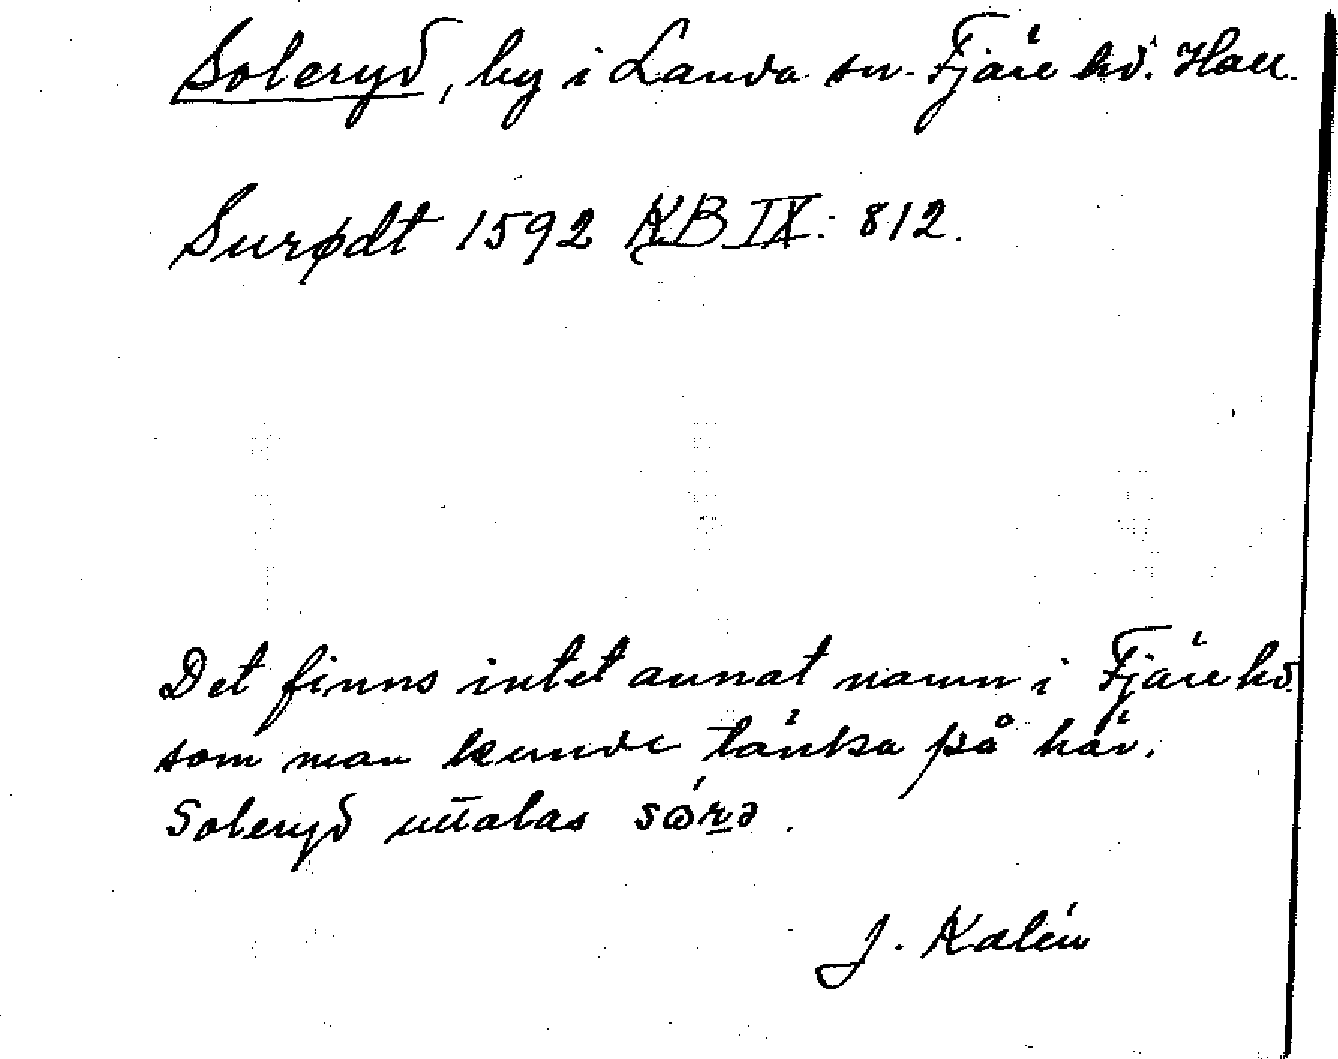 Soleryd, by i Landa sn. Fjäre hd. Hall.
Surødt 1592 KB IX: 812.
Det finns intet annat namn i Fjäre hd
som man kunde tänka på här.
Soleryd uttalas sörə.
J. Kalén